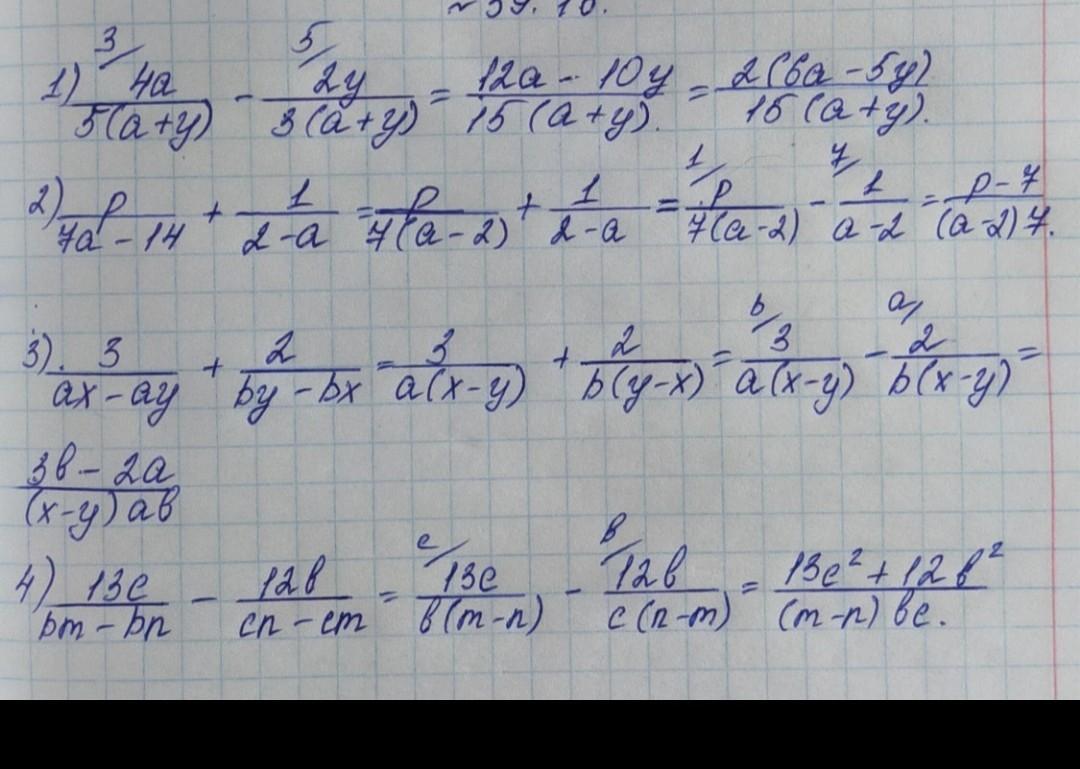 ~ 39. 10.
1) ³⁄ 4a / 5(a+y) - ⁵⁄ 2y / 3(a+y) = 12a - 10y / 15(a+y). = 2(6a-5y) / 15(a+y).
2) p / 7a-14 + 1 / 2-a = p / 7(a-2) + 1 / 2-a = ¹⁄ p / 7(a-2) - ⁷⁄ 1 / a-2 = p-7 / (a-2)7.
3). 3 / ax-ay + 2 / by-bx = 3 / a(x-y) + 2 / b(y-x) = ᵇ⁄ 3 / a(x-y) - ᵃ⁄ 2 / b(x-y) =
3b-2a / (x-y)ab
4) 13c / bm-bn - 12b / cn-cm = ᶜ⁄ 13c / b(m-n) - ᵇ⁄ 12b / c(n-m) = 13c²+12b² / (m-n)bc.